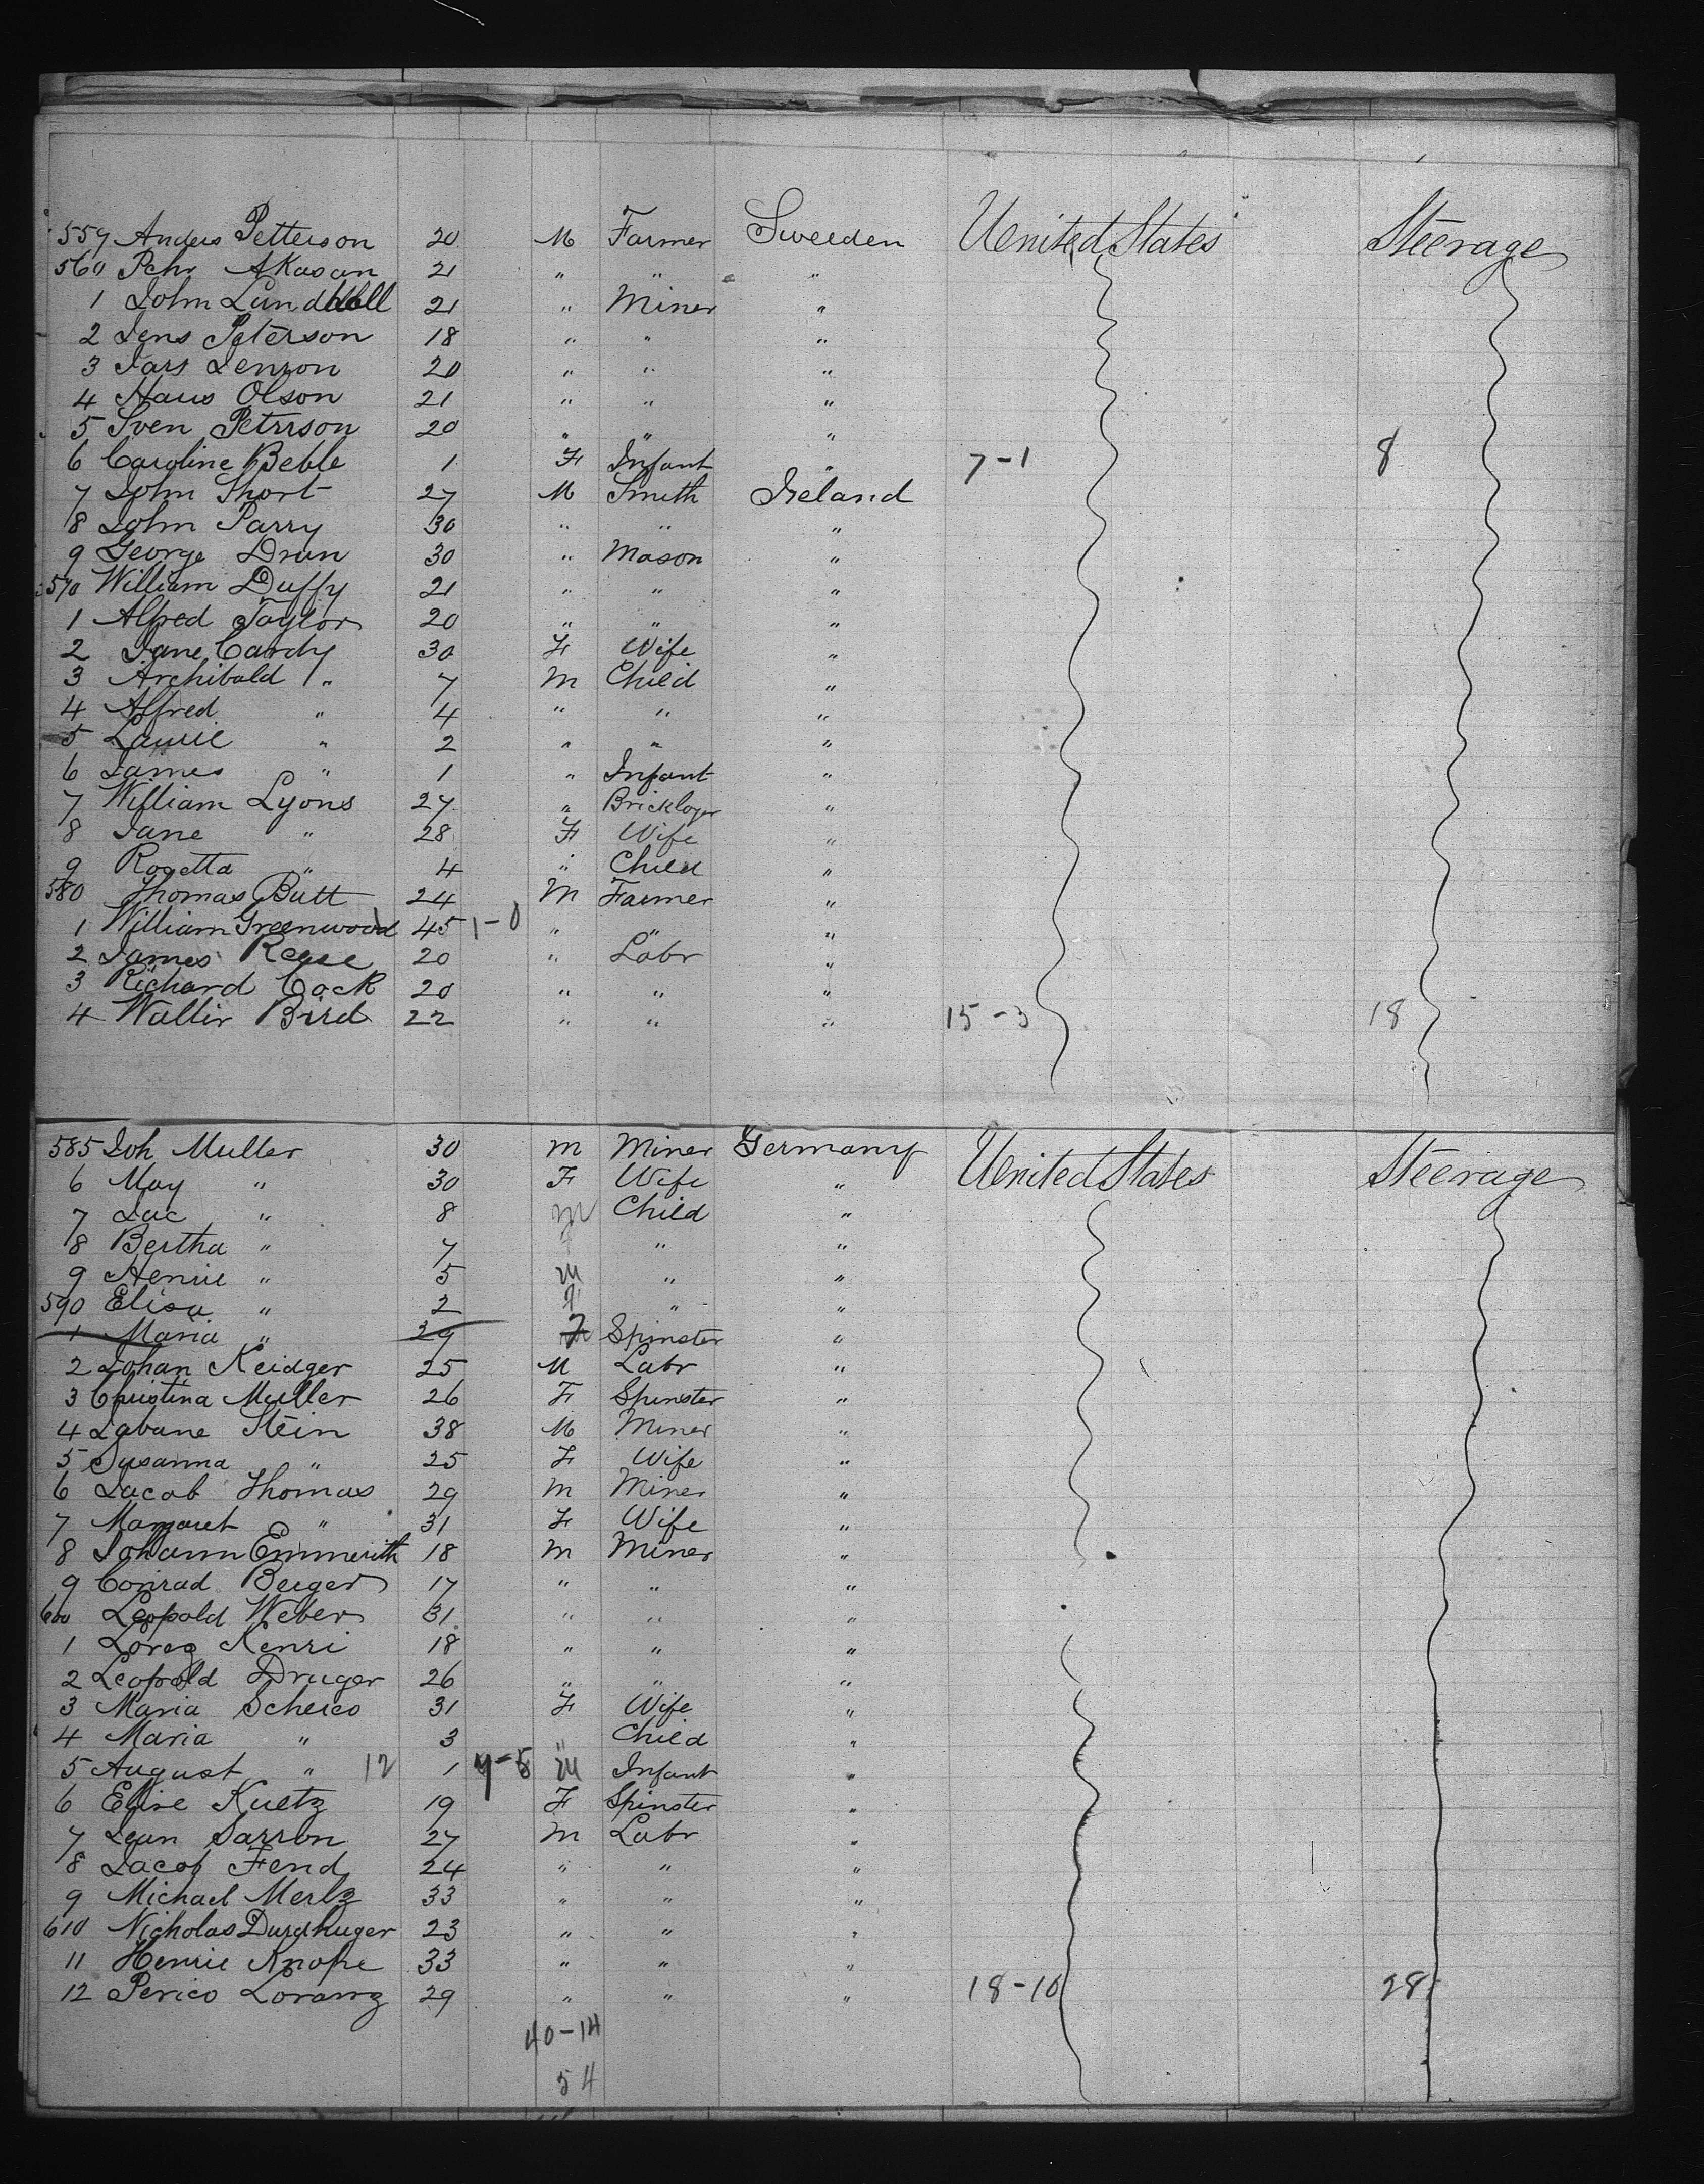 559 Anders Petterson 20 M Farmer Sweeden United States Steerage
560 Pehr Akasan 21 " " "
1 John Lundhall 21 " Miner "
2 Jens Peterson 18 " " "
3 Lars Jenson 20 " " "
4 Haus Olson 21 " " "
5 Sven Petrrson 20 " " "
6 Caroline Beble 1 F Infant " 7-1 8
7 John Short 27 M Smith Ireland
8 John Parry 30 " " "
9 George Drun 30 " Mason "
570 William Duffy 21 " " "
1 Alfred Taylor 20 " " "
2 Jane Cardy 30 F Wife "
3 Archibald " 7 M Child "
4 Alfred " 4 " " "
5 Laurie " 2 " " "
6 James " 1 " Infant "
7 William Lyons 27 " Bricklayer "
8 Jane " 28 F Wife "
9 Rosetta " 4 " Child "
580 Thomas Butt 24 M Farmer "
1 William Greenwood 45 1-0 " " "
2 James Reese 20 " Labr "
3 Richard Cock 20 " " "
4 Walter Bird 22 " " " 15-3 18
585 Joh Muller 30 M Miner Germany United States Steerage
6 May " 30 F Wife "
7 Jac " 8 M Child "
8 Bertha " 7 F " "
9 Henrie " 5 M " "
590 Elisa " 2 F " "
1 Maria " 29 F Spinster "
2 Johan Keidger 25 M Labr "
3 Christina Muller 26 F Spinster "
4 Stein 38 M Miner "
5 Susanna " 25 F Wife "
6 Jacob Thomas 29 M Miner "
7 Margaret " 31 F Wife "
8 Johann Emmerith 18 M Miner "
9 Conrad Berger 17 " " "
600 Leopold Weber 31 " " "
1 Loreg Kenri 18 " " "
2 Leopold Druger 26 " " "
3 Maria Scheico 31 F Wife "
4 Maria " 3 " Child "
5 August " 12 1 4-8 M Infant "
6 Elise Kuetz 19 F Spinster "
7 Jean Sarron 27 M Labr "
8 Jacob Fend 24 " " "
9 Michael Merlz 33 " " "
610 Nicholas Durdhuger 23 " " "
11 Henrie Knope 33 " " "
12 Perico Lorang 29 " " " 18-10 28
40-14
54